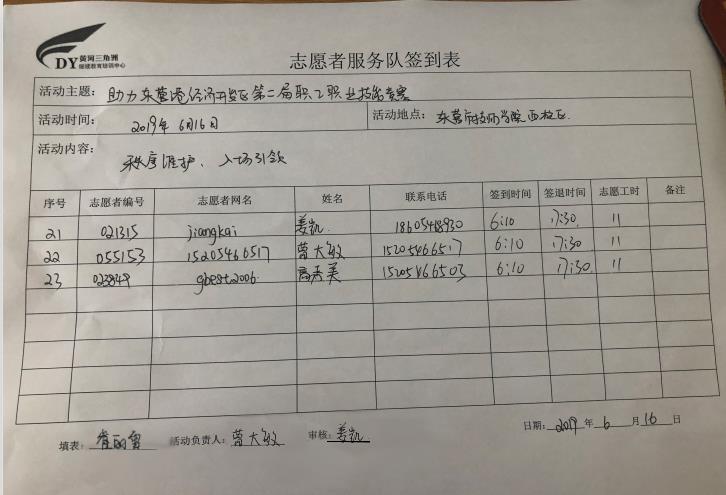 DY 黄河三角洲
继续教育培训中心
志愿者服务队签到表
活动主题: 助力东营港经济开发区第二届职工职业技能竞赛
活动时间: 2019年6月16日 活动地点: 东营市技师学院西校区.
活动内容:
秩序维护、入场引领
序号 志愿者编号 志愿者网名 姓名 联系电话 签到时间 签退时间 志愿工时 备注
21 021315 jiangkai 姜凯. 18605468930 6:10 17:30 11
22 055153 15205466517 曹大敏 15205466517 6:10 17:30 11
23 023849 gbest2006 高秀美 15205466503 6:10 17:30 11
填表: 活动负责人: 曹大敏 审核: 姜凯 日期: 2019 年 6 月 16 日